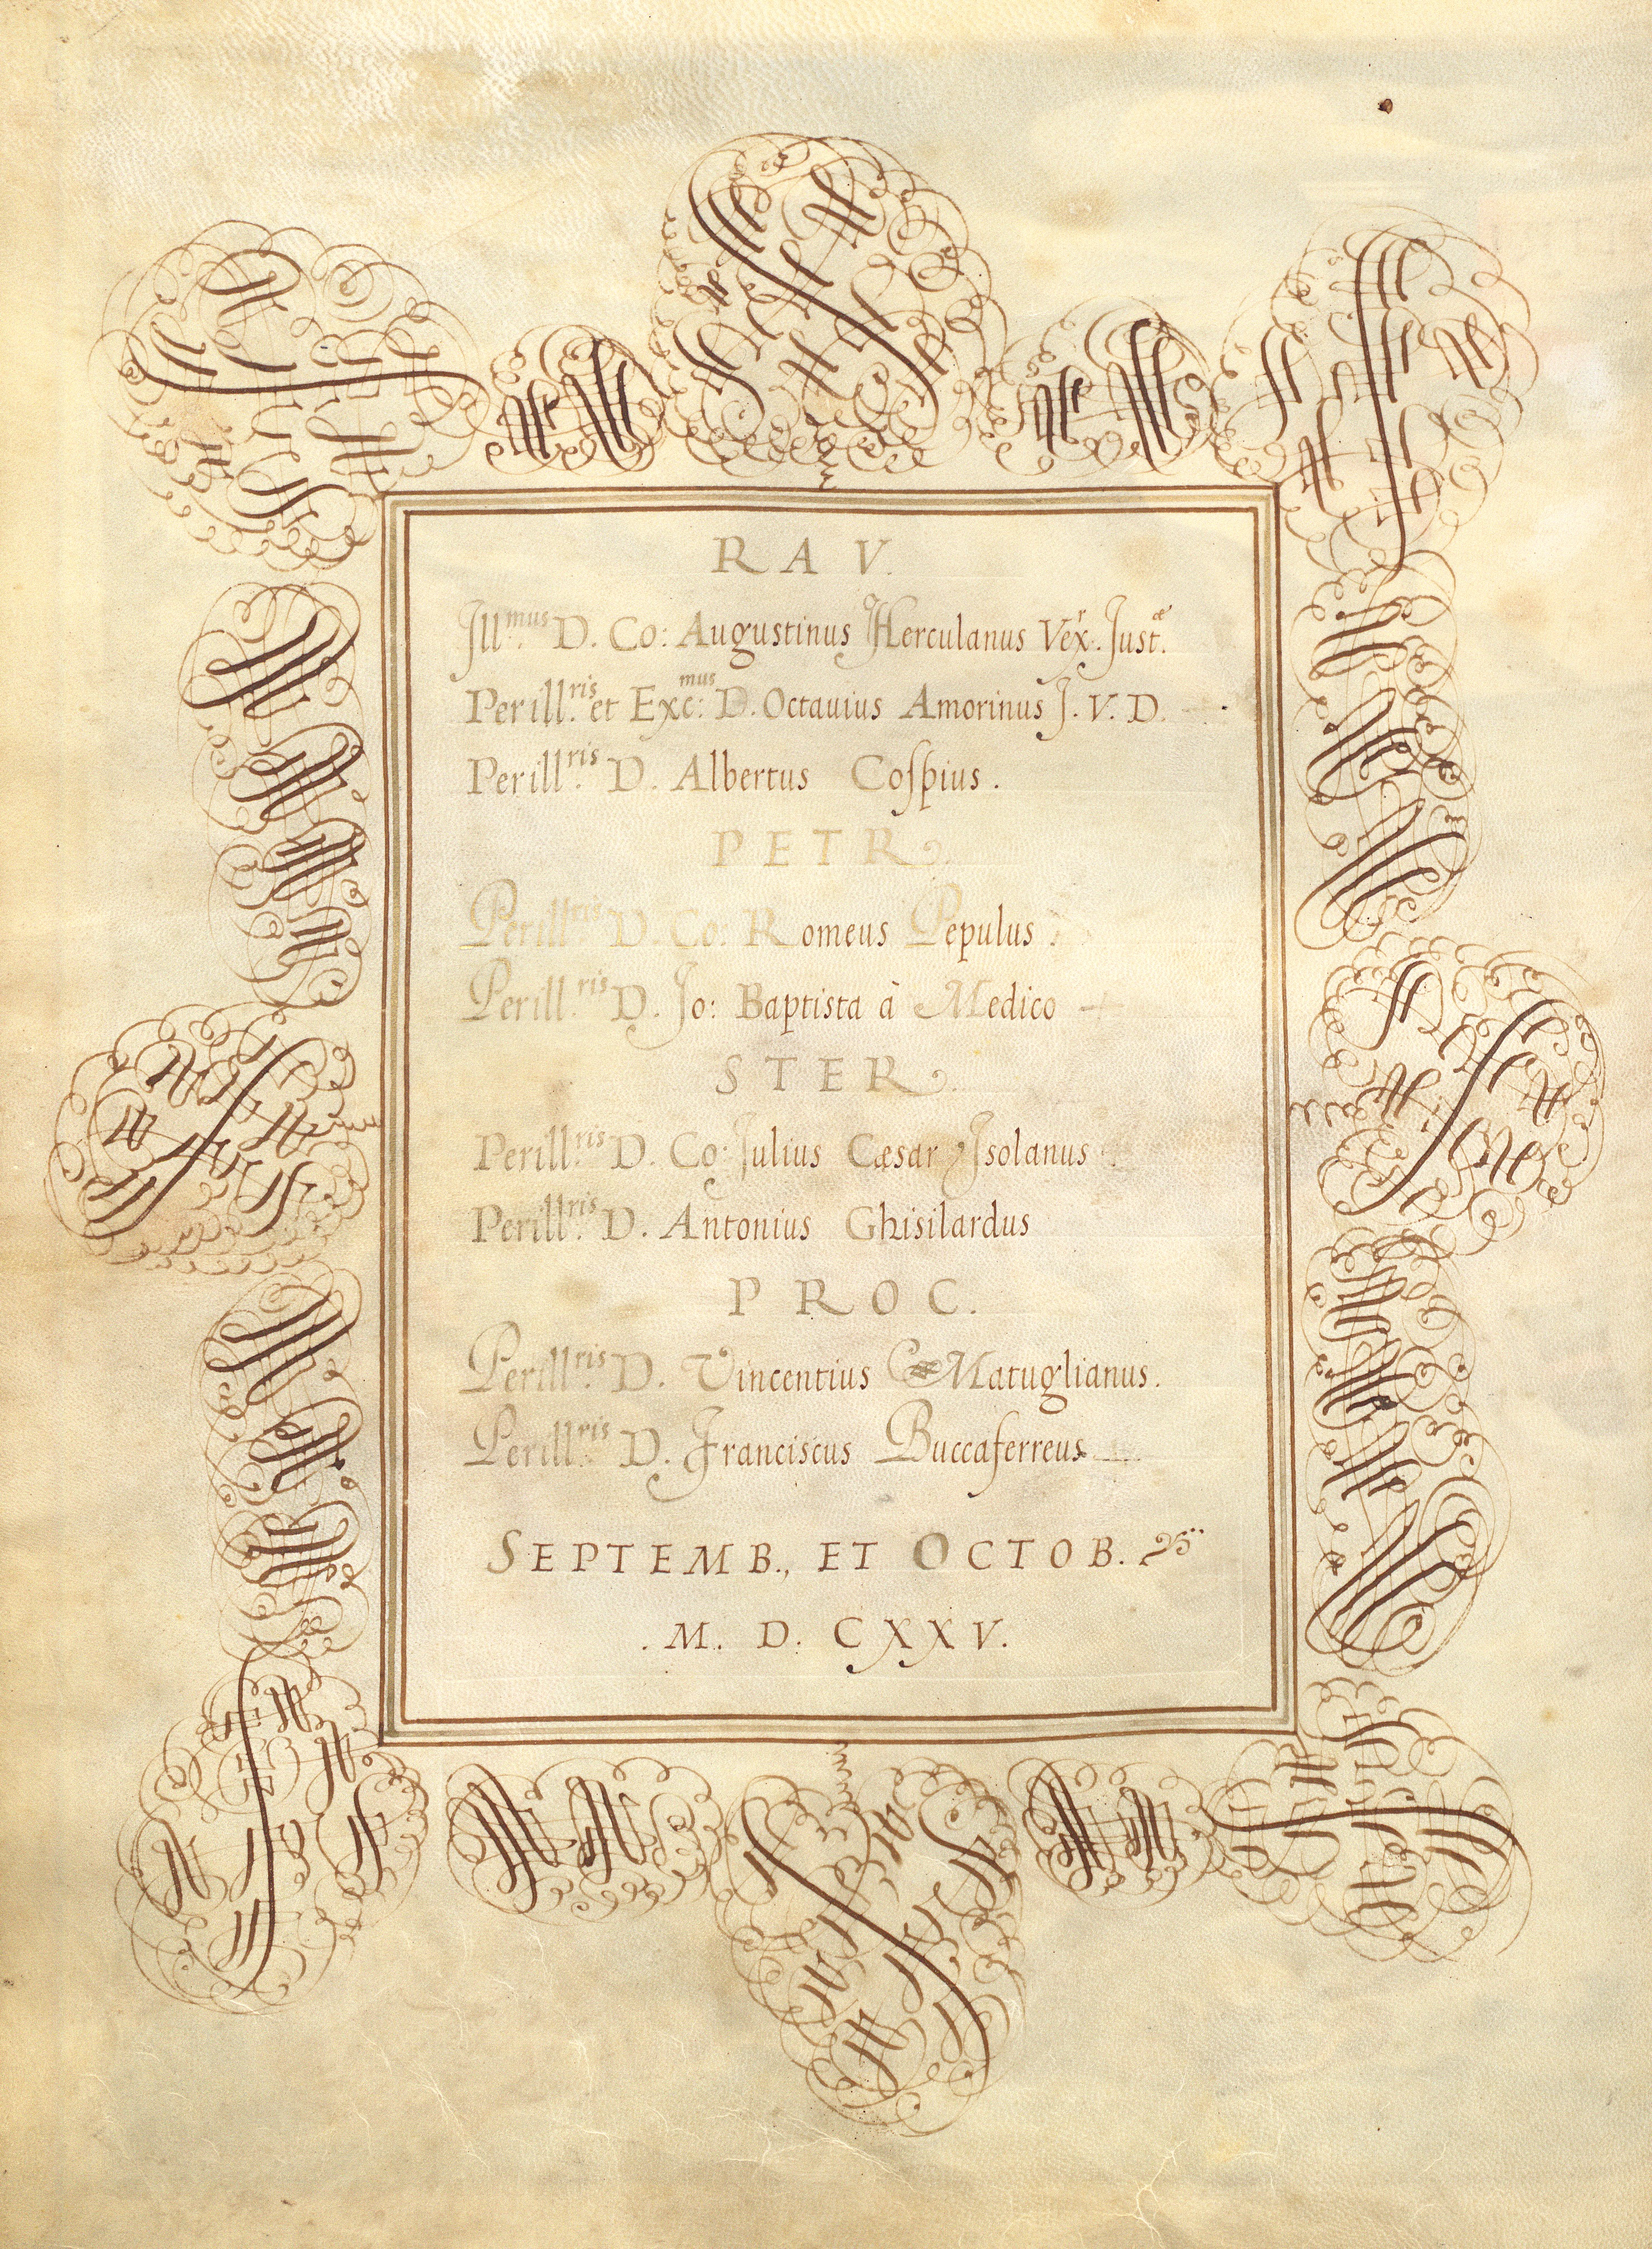 RAV.
Jll.mus D. Co: Augustinus Herculanus Vex.r Just.æ
Perill.ris et Exc:mus D. Octauius Amorinus J. V. D.
Perill.ris D. Albertus Coſpius.
PETR.
Perill.ris D. Co. Romeus Pepulus.
Perill.ris D. Jo: Baptista à Medico
STER.
Perill.ris D. Co: Julius Cæsar Jsolanus.
Perill.ris D. Antonius Ghisilardus
PROC.
Perill.ris D. Vincentius Matuglianus.
Perill.ris D. Franciscus Buccaferreus
SEPTEMB., ET OCTOB.
.M. D. CXXV.